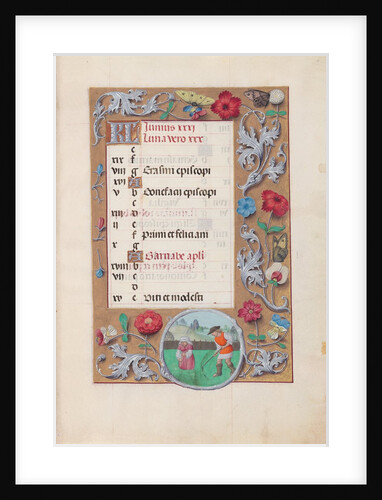 KL Iunius xxxi
Luna vero xxx
e
xix f
viii g Erasmi episcopi
xvi A
v b Bonefacii episcopi
c
xiii D
ii e
f Primi et feliciani
x g
A Barnabe apli
xviii b
vii c
D
xv e Viti et modesti